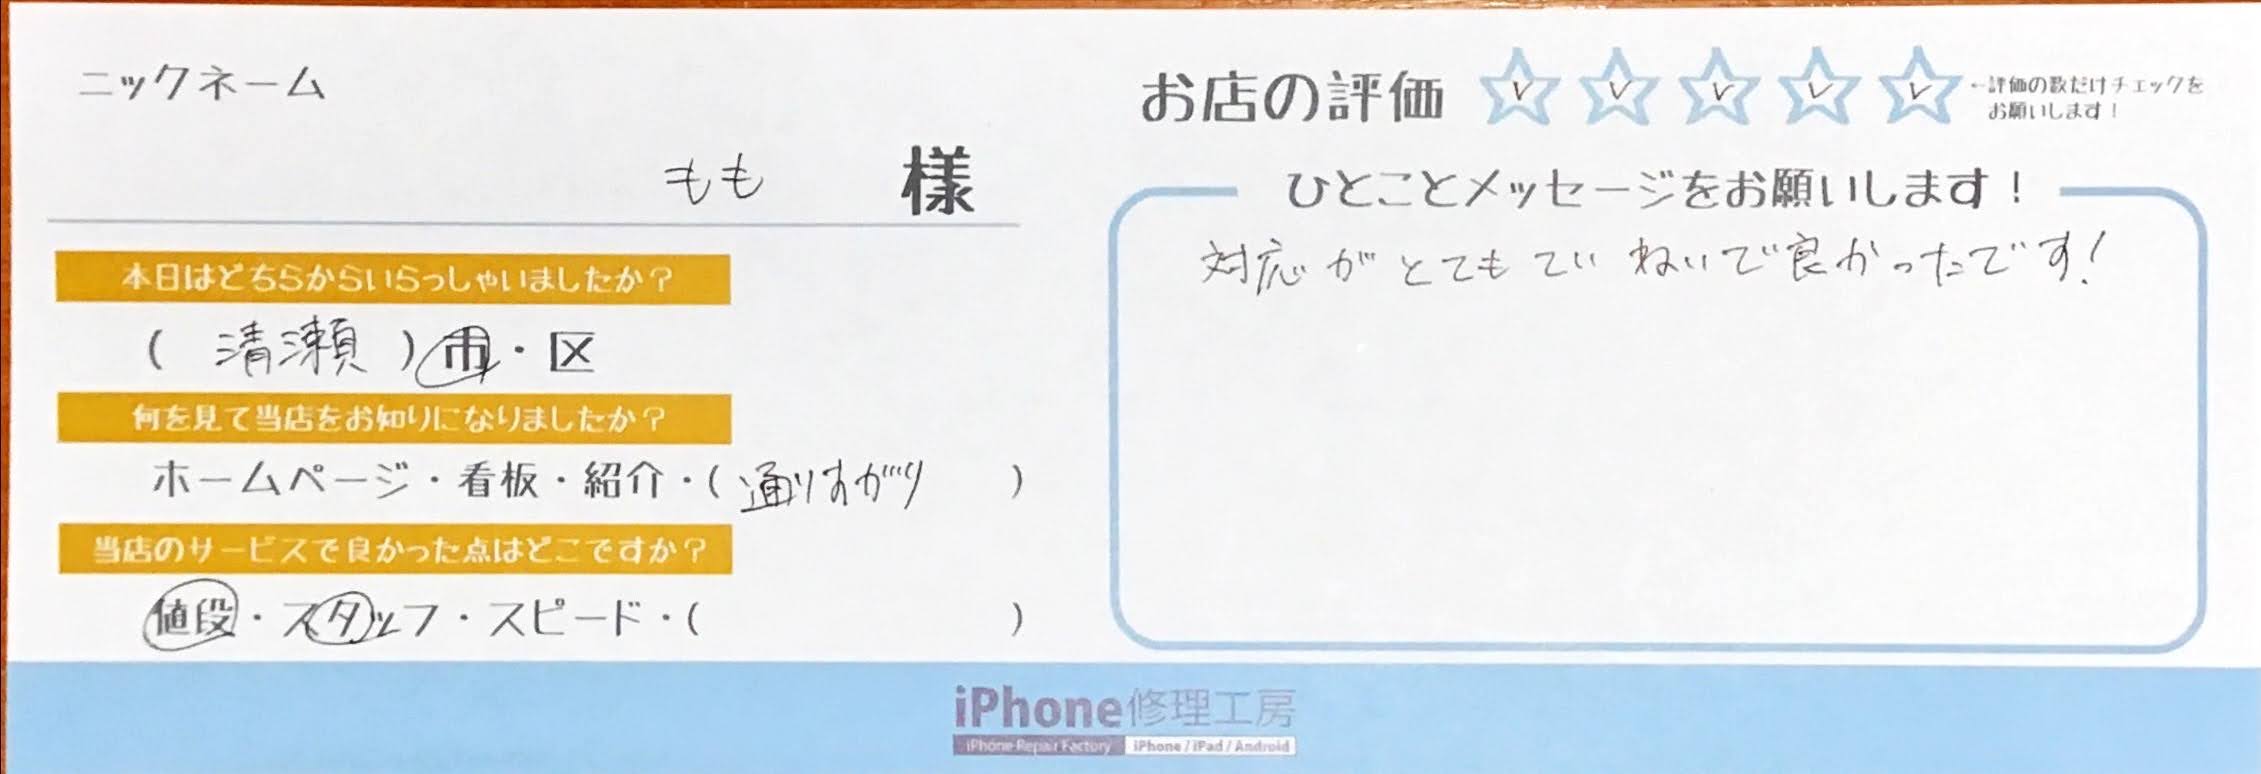 ニックネーム
もも 様
本日はどちらからいらっしゃいましたか？
( 清瀬 ) 市・区
何を見て当店をお知りになりましたか？
ホームページ・看板・紹介・( 通りすがり )
当店のサービスで良かった点はどこですか？
値段・スタッフ・スピード・( )
お店の評価 ☆☆☆☆☆ ←評価の数だけチェックを
お願いします！
ひとことメッセージをお願いします！
対応がとてもていねいで良かったです！
iPhone修理工房
iPhone Repair Factory iPhone / iPad / Android